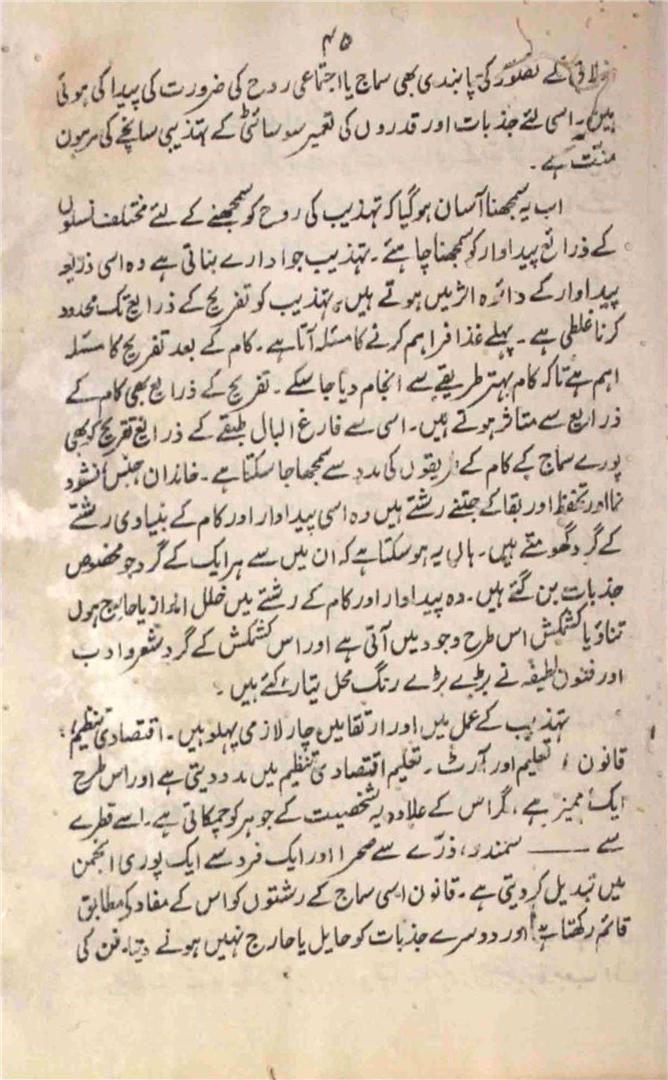 ۴۵
کے تصور کی پابندی بھی سماج یا اجتماعی روح کی ضرورت کی پیدا کی ہوئی
ہیں۔ اسی لئے جذبات اور قدروں کی تعمیر سوسائٹی کے تہذیبی سانچے کی مرہون
منت ہے۔
اب یہ سمجھنا آسان ہوگیا کہ تہذیب کی روح کو سمجھنے کے لئے مختلف نسلوں
کے ذرائع پیداوار کو سمجھنا چاہئے۔ تہذیب جو ادارے بناتی ہے وہ اسی ذریعہ
پیداوار کے دائرہ اثر میں ہوتے ہیں۔ تہذیب کو تفریح کے ذرایع تک محدود
کرنا غلطی ہے۔ پہلے غذا فراہم کرنے کا مسئلہ آتا ہے۔ کام کے بعد تفریح کا مسئلہ
اہم ہے تاکہ کام بہتر طریقے سے انجام دیا جا سکے۔ تفریح کے ذرایع بھی کام کے
ذرایع سے متاثر ہوتے ہیں۔ اسی سے فارغ البال طبقے کے ذرائع تفریح کو بھی
پورے سماج کے کام کے طریقوں کی مدد سے سمجھا جا سکتا ہے۔ خاندان، جنس، نشوو
نما اور تحفظ اور بقا کے جتنے رشتے ہیں وہ اسی پیداوار اور کام کے بنیادی رشتے
کے گرد گھومتے ہیں۔ ہاں یہ ہو سکتا ہے کہ ان میں سے ہر ایک کے گرد جو مخصوص
جذبات بن گئے ہیں۔ وہ پیداوار اور کام کے رشتے میں خلل انداز یا حارج ہوں
تناؤ یا کشمکش اس طرح وجود میں آتی ہے اور اس کشمکش کے گرد شعر و ادب
اور فنون لطیفہ نے بڑے بڑے رنگ محل تیار کئے ہیں۔
تہذیب کے عمل میں اور ارتقا میں چار لازمی پہلو ہیں۔ اقتصادی تنظیم،
قانون، تعلیم اور آرٹ۔ تعلیم اقتصادی تنظیم میں مدد دیتی ہے اور اس طرح
ایک ممیز ہے، مگر اس کے علاوہ یہ شخصیت کے جوہر کو چمکاتی ہے۔ اسے قطرے
سے ——— سمندر، ذرّے سے صحرا اور ایک فرد سے ایک پوری انجمن
میں تبدیل کر دیتی ہے۔ قانون اسی سماج کے رشتوں کو اس کے مفاد کے مطابق
قائم رکھتا ہے اور دوسرے جذبات کو حایل یا حارج نہیں ہونے دیتا۔ فن کی